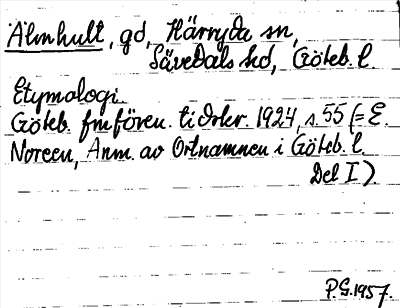 Älmhult, gd, Härryda sn,
Sävedals hd, Göteb. l
Etymologi.
Göteb. fmfören. tidskr. 1924, s. 55 (= E.
Noreen, Anm. av Ortnamnen i Göteb. l.
Del I)
P.G. 1957.